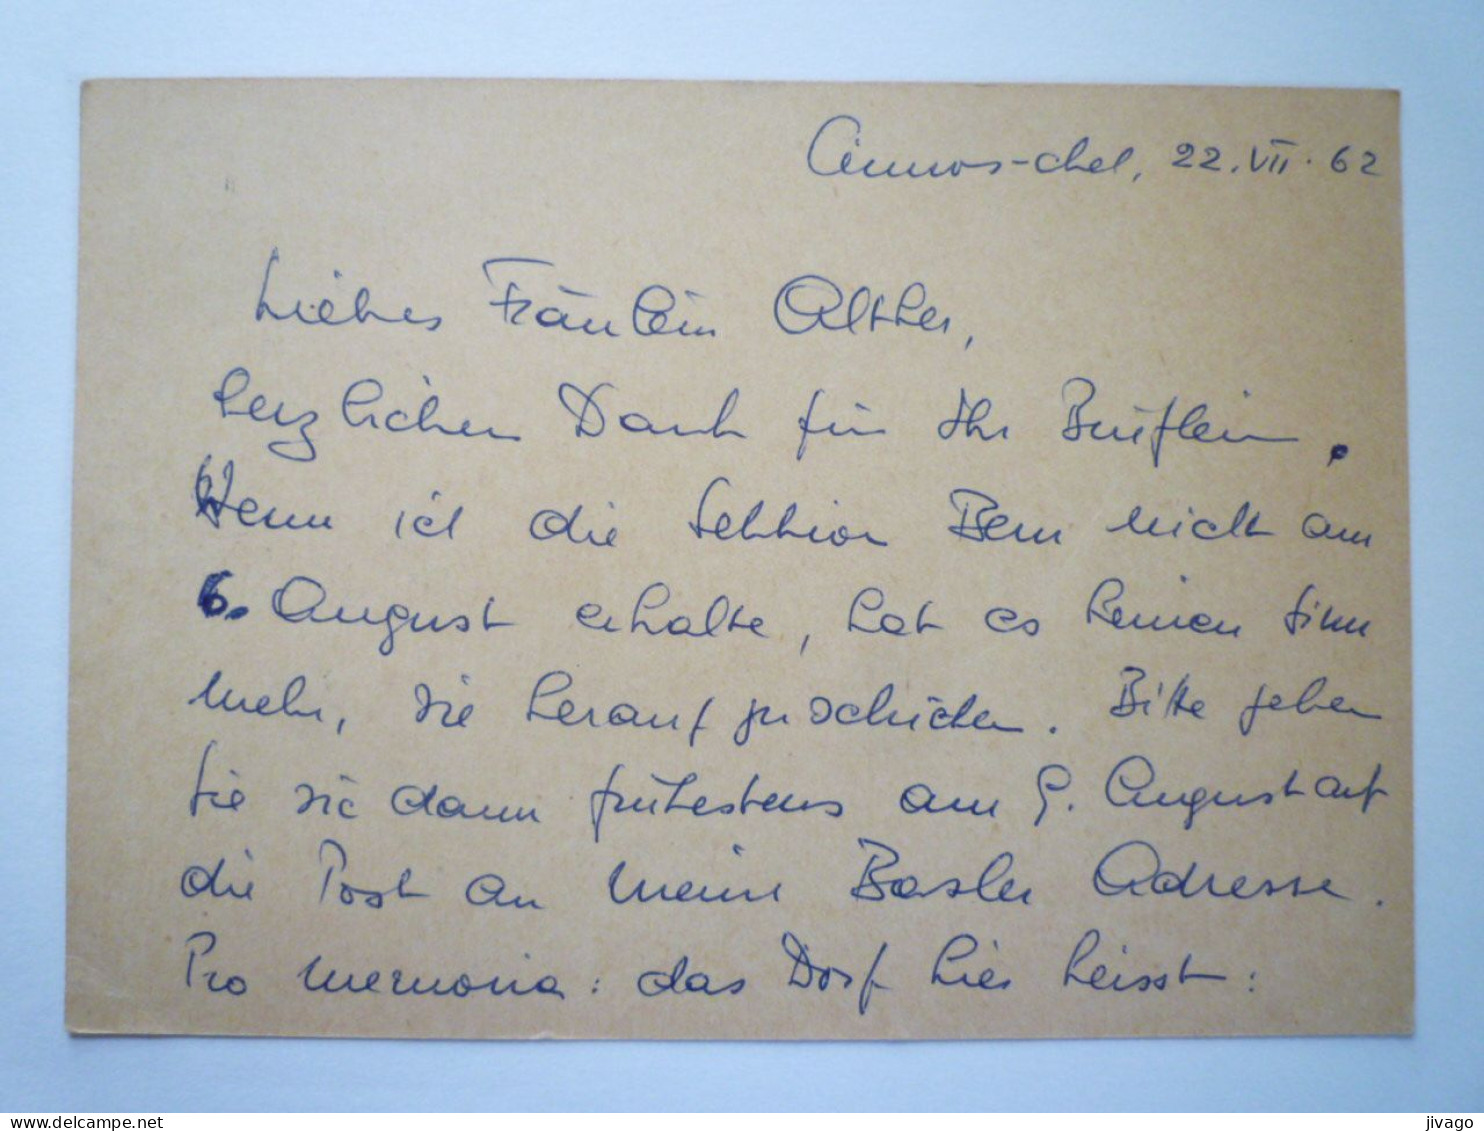 Cinuos-chel, 22.VII.62
Liebes Fräulein Alther,
herzlichen Dank für Ihr Brieflein.
Wenn ich die Sektion Bern nicht am
6. August erhalte, hat es keinen Sinn
mehr, sie herauf zu schicken. Bitte geben
Sie sie dann frühestens am 9. August auf
die Post an meine Basler Adresse.
Pro memoria: das Dorf hier heisst:
delcampe.net
jivago